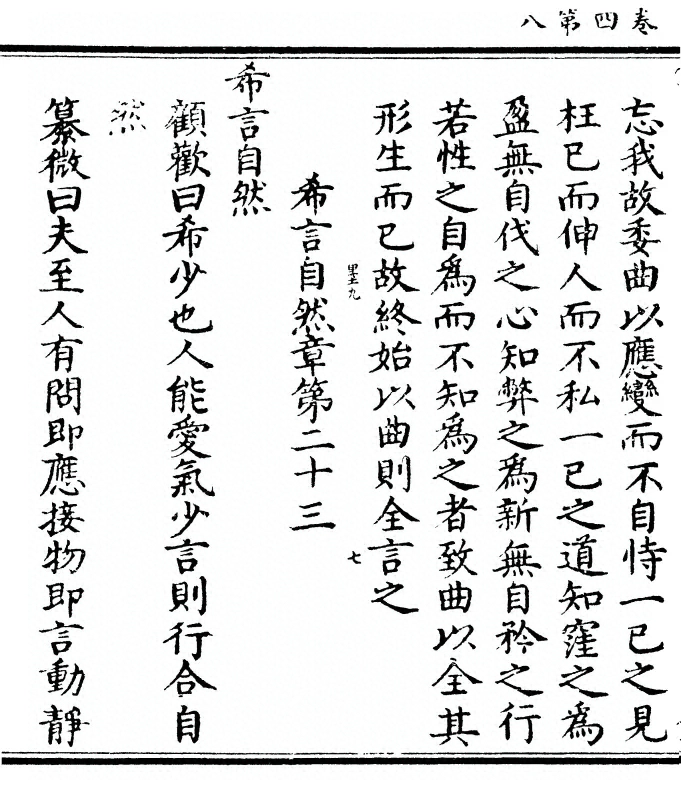 卷四第八
忘我故委曲以應變而不自恃一己之見
枉己而伸人而不私一己之道知窪之為
盈無自伐之心知弊之為新無自矜之行
若性之自為而不知為之者致曲以全其
形生而已故終始以曲則全言之
七
希言自然章第二十三
希言自然
顧歡曰希少也人能愛氣少言則行合自
然
纂微曰夫至人有問即應接物即言動靜